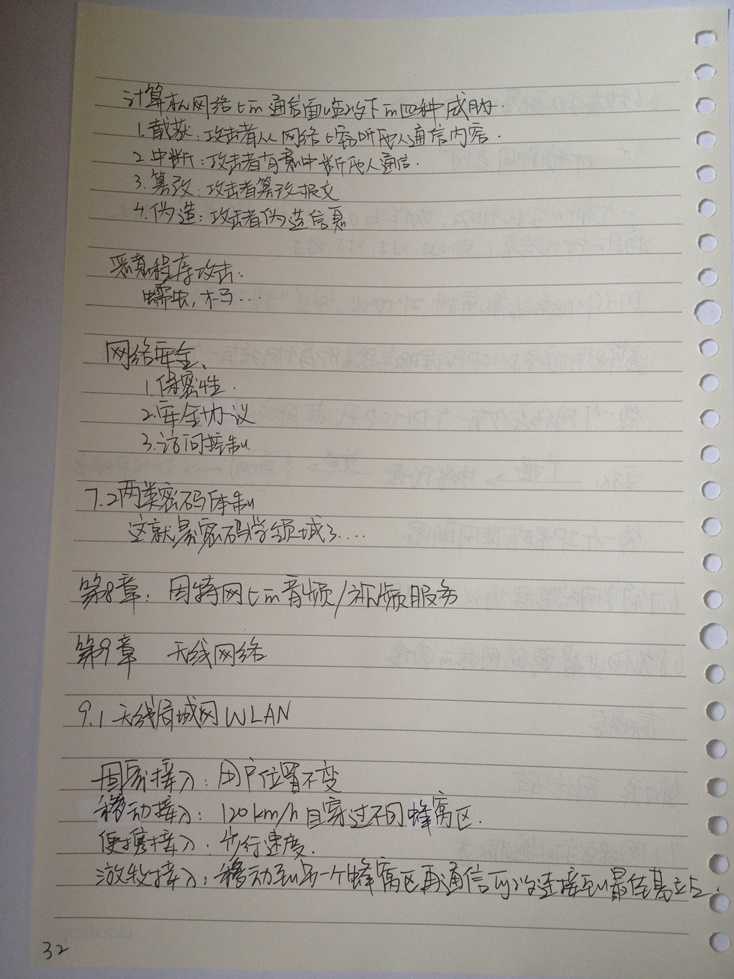 计算机网络上的通信面临以下的四种威胁.
1.截获:攻击者从网络上窃听他人通信内容.
2.中断:攻击者有意中断他人通信.
3.篡改:攻击者篡改报文
4.伪造:攻击者伪造信息
恶意程序攻击:
蠕虫,木马...
网络安全、
1.保密性.
2.安全协议
3.访问控制
7.2两类密码体制
这就是密码学领域了....
第8章:因特网上的音频/视频服务
第9章 无线网络
9.1 无线局域网WLAN
固定接入:用户位置不变
移动接入:120km/h 且穿过不同蜂窝区.
便携接入:步行速度.
游牧接入:移动到另一个蜂窝区再通信可以连接到最佳基站.
32